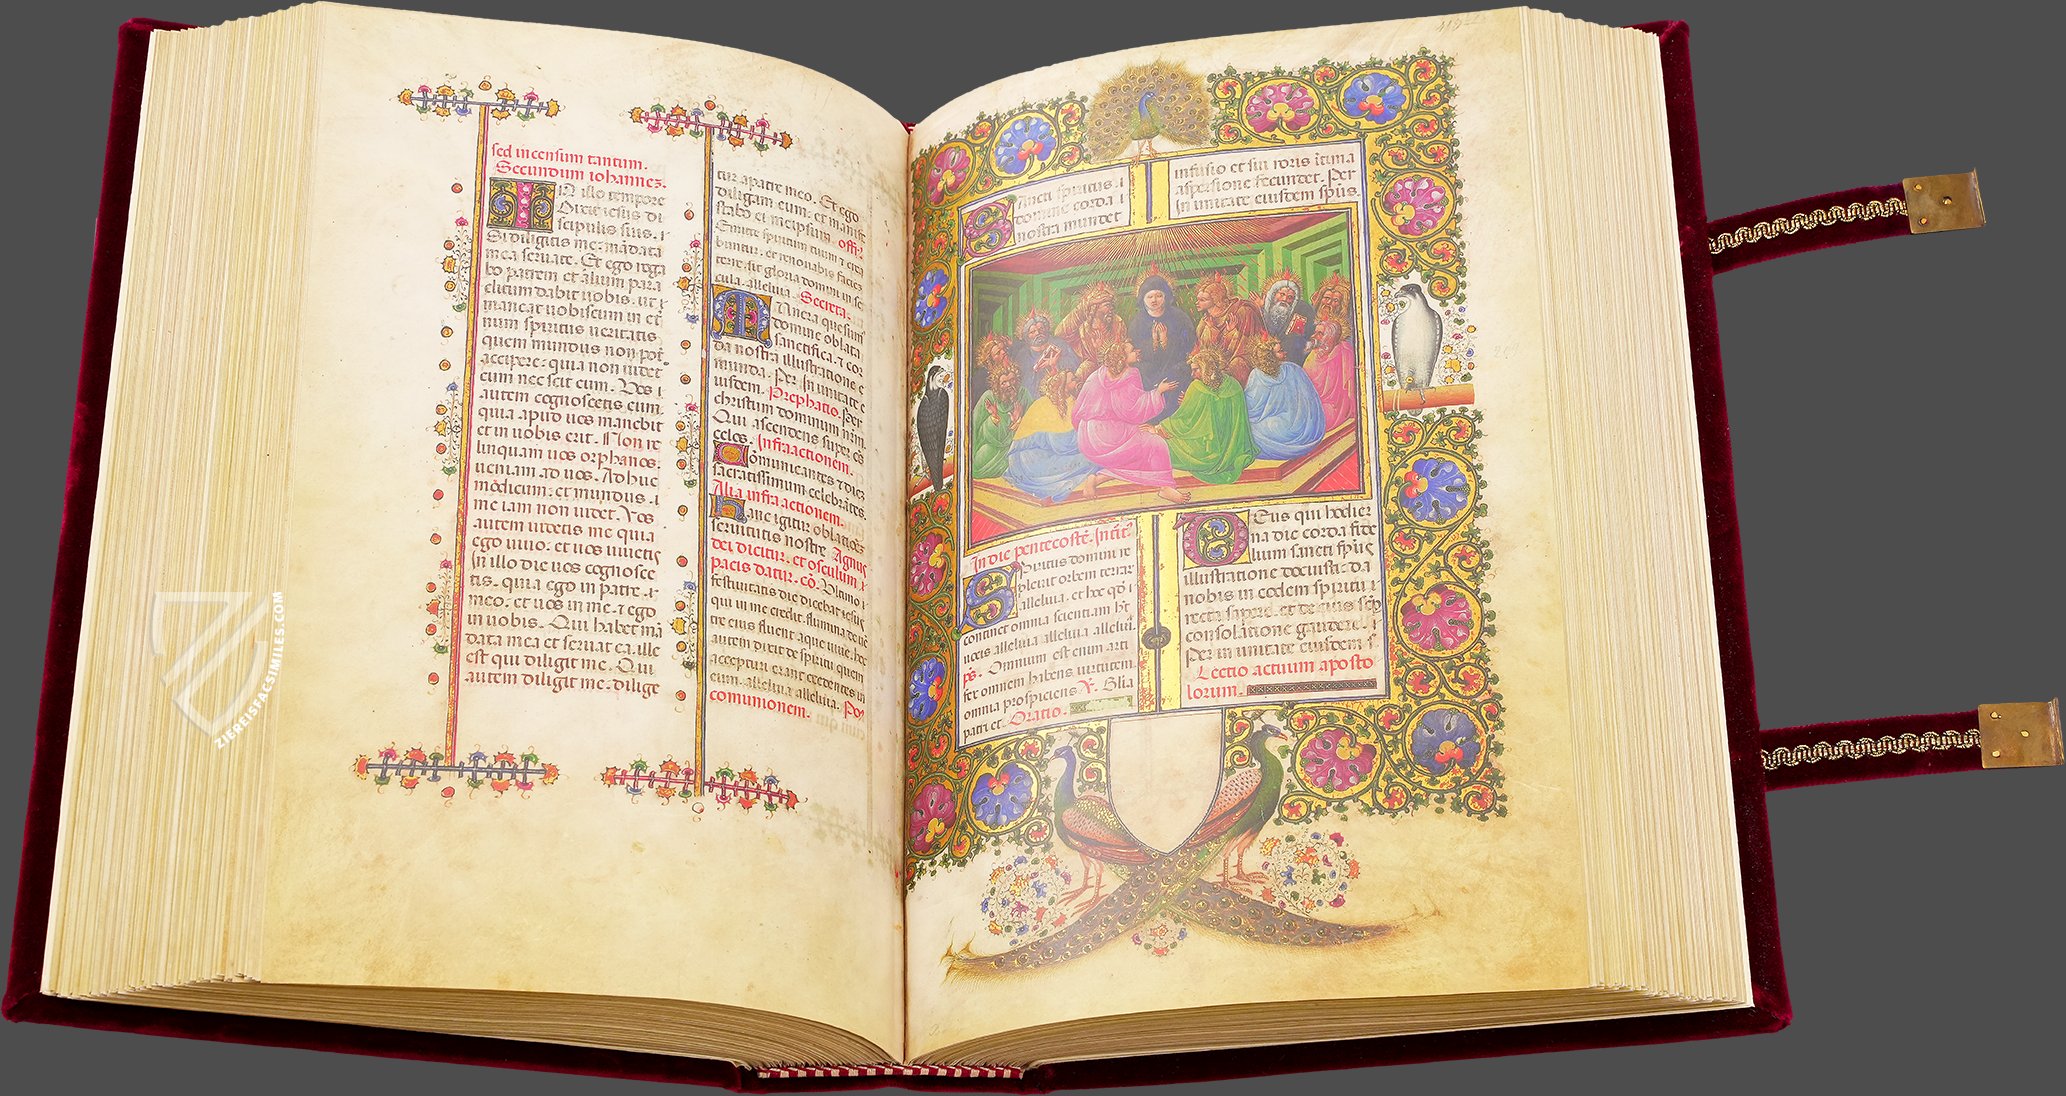 sed incensum tantum.
Secundum iohannez.
IN illo tempore
Dixit iesus di
scipulis suis. i
Si diligitis me: mādata
mea seruate. Et ego roga
bo patrem et alium para
clitum dabit uobis. ut i
maneat uobiscum in et̄
num spiritus ueritatis
quem mundus non pot̄
accipere. quia non uidet
eum nec scit eum. Vos i
autem cognoscetis eum.
quia apud uos manebit
et in uobis erit. Non re
linquam uos orphanos.
ueniam ad uos. Adhuc
modicum: et mundus. i
me iam non uidet. Vos
autem uidetis me quia
ego uiuo. et uos uiuetis
in illo die uos cognosce
tis. quia ego in patre. i
meo. et uos in me. 7 ego
in uobis. Qui habet mā
data mea et seruat ea. ille
est qui diligit me. Qui
autem diligit me. dilige
tur a patre meo. Et ego
diligam eum. et manife
stabo ei meipsum. offr̄
Emitte spiritum tuum 7 crea
buntur. et renouabis faciez
terre. sit gloria domini in se
cula. alleluia. Secreta.
Munera quesum̄
domine oblata
sanctifica. 7 cor
da nostra illustratione
munda. Per. In unitate e
iusdem. Prephatio. Per
christum dominum nrm̄.
Qui ascendens super oēs
celos. Infra actionem.
Comunicantes 7 diez
sacratissimum celebrātes.
Alia infra actionem.
Hanc igitur oblationez
seruitutis nostre Agnus
dei dicitur. et osculum i
pacis datur. cō. Ultimo i
festiuitatis die dicebat iesus
qui in me credit. flumina de uē
tre eius fluent aque uiue. hoc
autem dixit de spiritu quem
accepturi erant credentes in
eum. alleluia alleluia. Pos
comunionem.
Sancti spiritus. i
domine corda i
nostra mundet
infusio et sui roris ītima
aspersione fecundet. Per
In unitate eiusdem sp̄us.
In die pentecostē. Intit̄.
Spiritus domini re
pleuit orbem terrar
alleluia. et hoc qd̄ i
continet omnia scientiam h̄t
uocis alleluia alleluia alleluiā
ps̄. Omnium est enim arti
fex omnem habens uirtutem.
omnia prospiciens. V̄. Glīa
patri et. Oratio.
Deus qui hodier
na die corda fide
lium sancti sp̄us
illustratione docuisti. da
nobis in eodem spiritu i
recta sapere. et de eius sēp
consolatione gaudere. i
Per in unitate eiusdem s.
Lectio actuum aposto
lorum.
ZIEREISFACSIMILES.COM